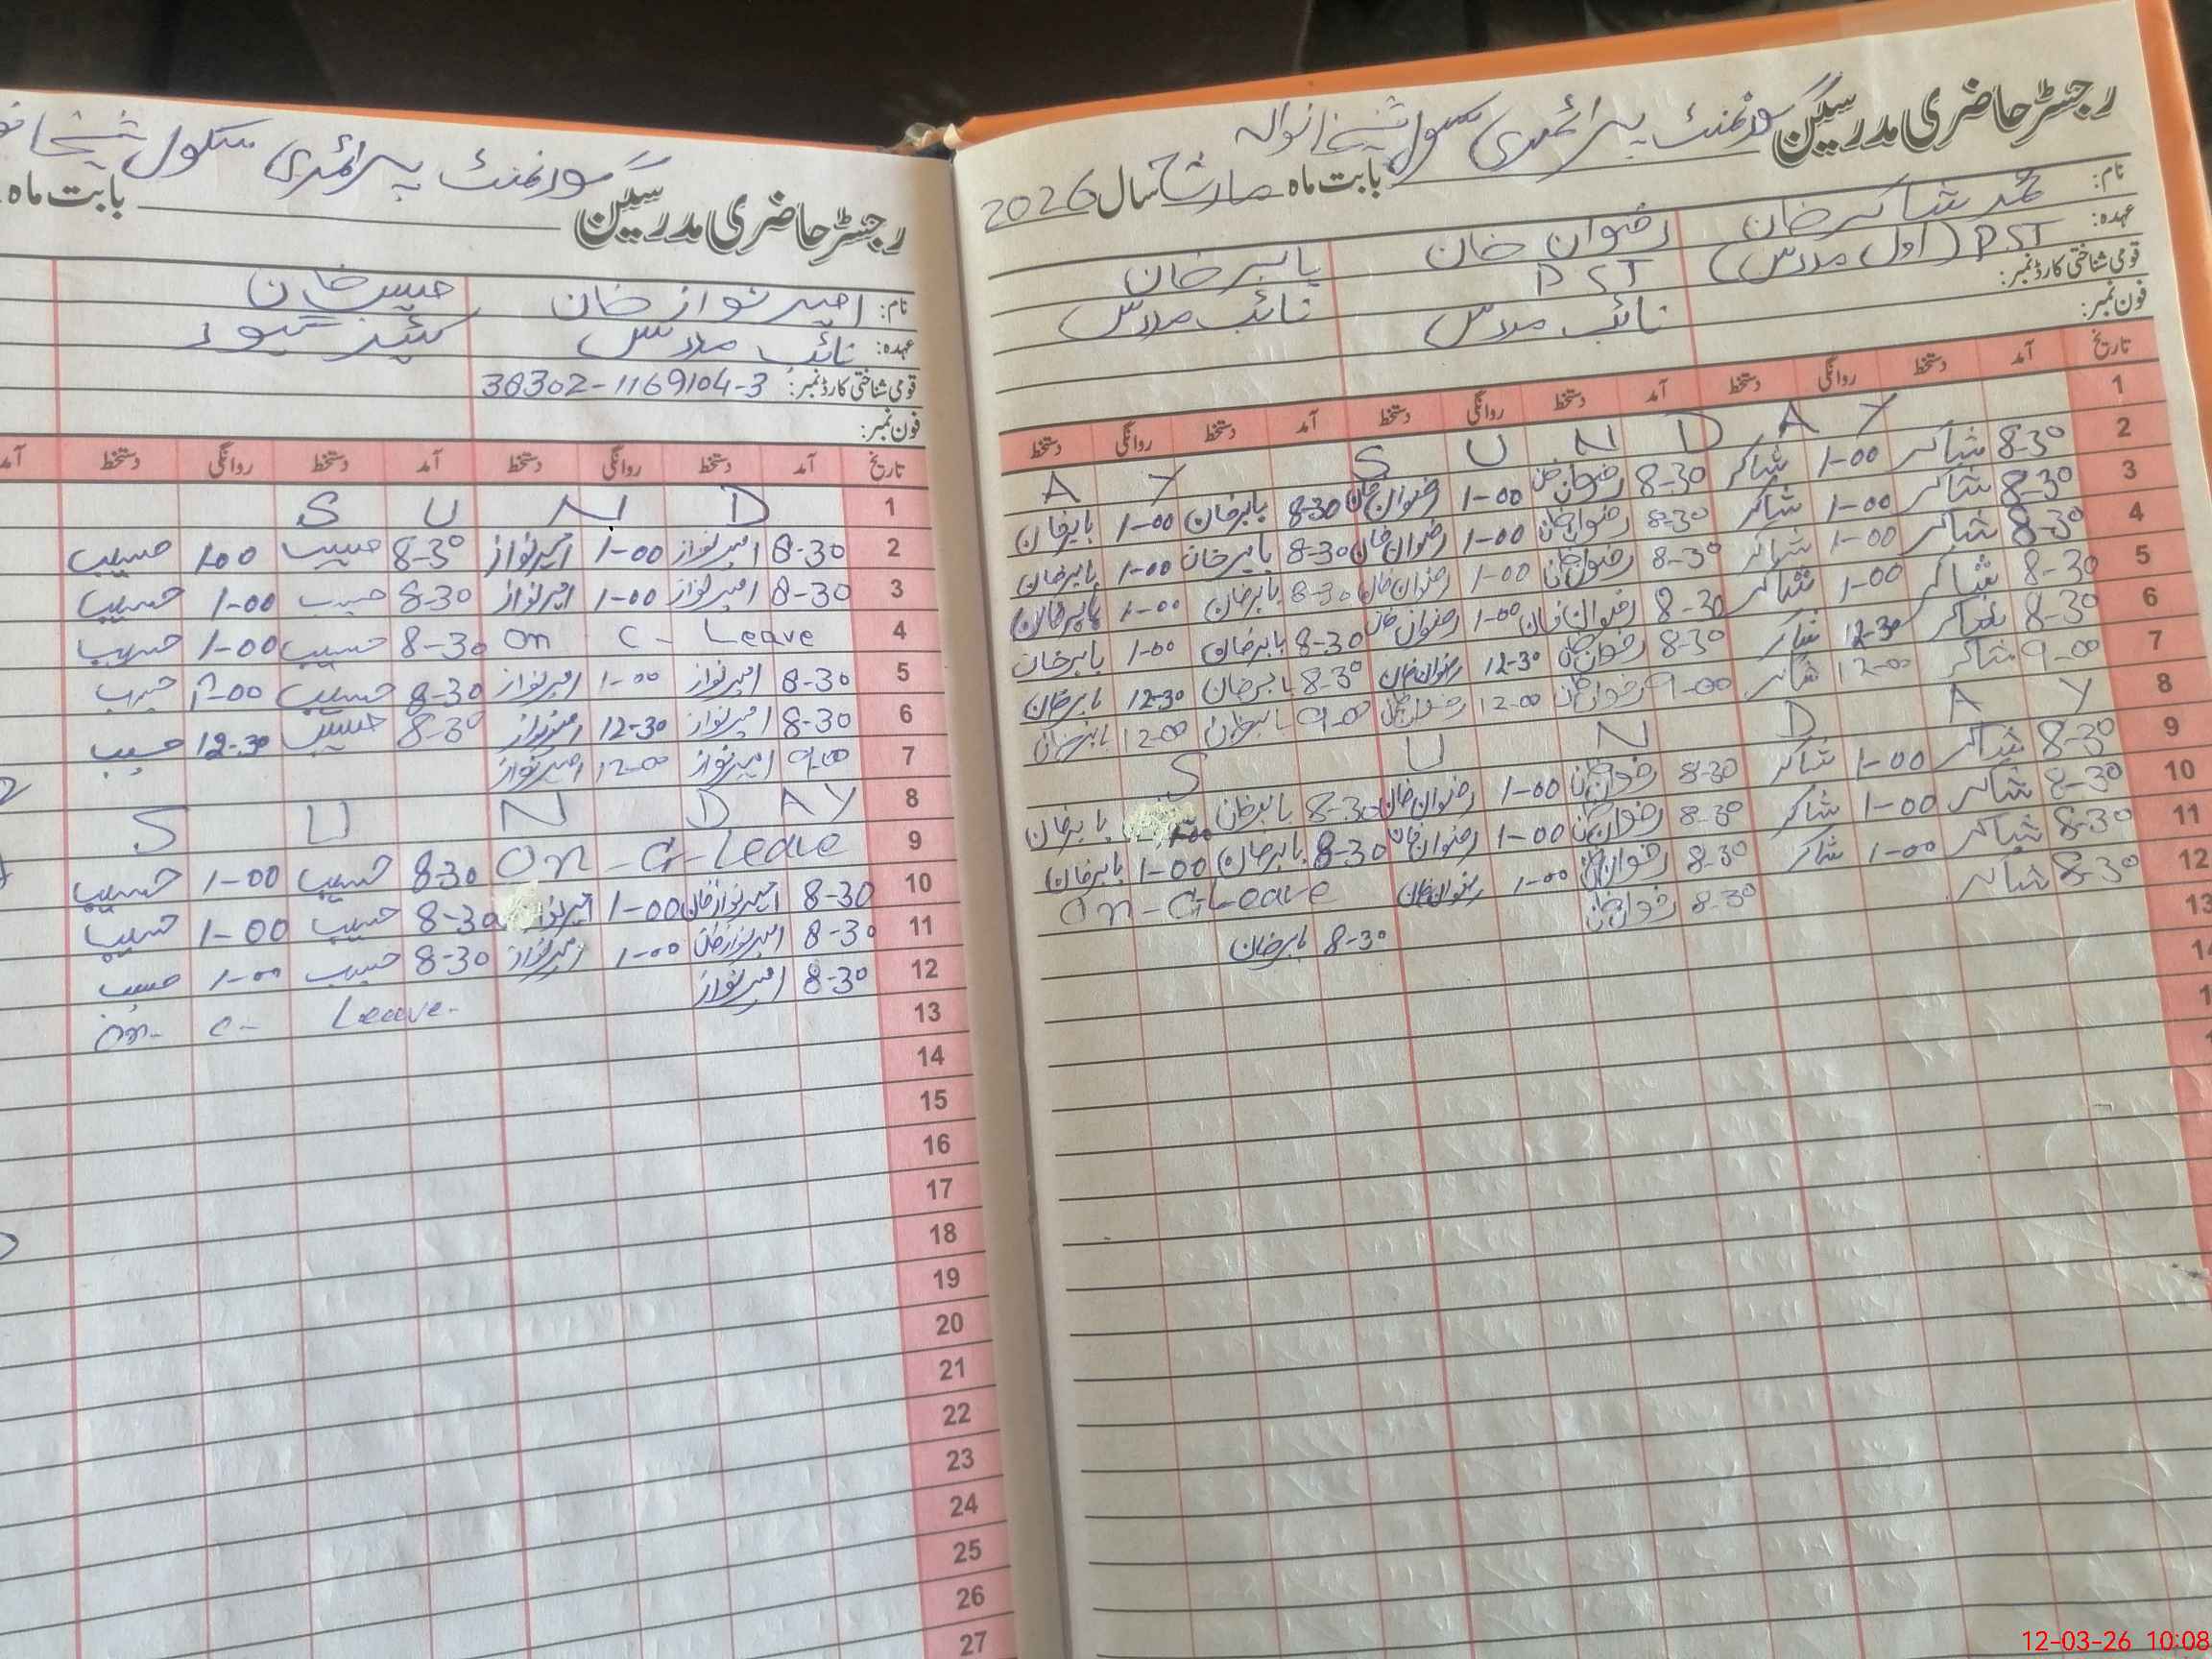 رجسٹر حاضری مدرسین گورنمنٹ پرائمری سکول شیخانوالہ
بابت ماہ مارچ سال 2026
نام: محمد شاکر خان رضوان خان بابر خان
عہدہ: PST (اول مدرس) PST نائب مدرس نائب مدرس
قومی شناختی کارڈ نمبر:
فون نمبر:
تاریخ آمد دستخط روانگی دستخط آمد دستخط روانگی دستخط آمد دستخط روانگی دستخط
1 S U N D A Y A Y
2 8-30 شاکر 1-00 شاکر 8-30 رضوان خان 1-00 رضوان خان 8-30 بابر خان 1-00 بابر خان
3 8-30 شاکر 1-00 شاکر 8-30 رضوان خان 1-00 رضوان خان 8-30 بابر خان 1-00 بابر خان
4 8-30 شاکر 1-00 شاکر 8-30 رضوان خان 1-00 رضوان خان 8-30 بابر خان 1-00 بابر خان
5 8-30 شاکر 1-00 شاکر 8-30 رضوان خان 1-00 رضوان خان 8-30 بابر خان 1-00 بابر خان
6 8-30 شاکر 12-30 شاکر 8-30 رضوان خان 12-30 رضوان خان 8-30 بابر خان 12-30 بابر خان
7 9-00 شاکر 12-00 شاکر 9-00 رضوان خان 12-00 رضوان خان 9-00 بابر خان 12-00 بابر خان
8 S U N D A Y
9 8-30 شاکر 1-00 شاکر 8-30 رضوان خان 1-00 رضوان خان 8-30 بابر خان 1-00 بابر خان
10 8-30 شاکر 1-00 شاکر 8-30 رضوان خان 1-00 رضوان خان 8-30 بابر خان 1-00 بابر خان
11 8-30 شاکر 1-00 شاکر 8-30 رضوان خان 1-00 رضوان خان On - C-Leave
12 8-30 شاکر 8-30 رضوان خان 8-30 بابر خان
13
14
گورنمنٹ پرائمری سکول
رجسٹر حاضری مدرسین بابت ماہ
نام: امیر نواز خان حسیب خان
عہدہ: نائب مدرس کیئر ٹیوڈ
قومی شناختی کارڈ نمبر: 38302-1169104-3
فون نمبر:
تاریخ آمد دستخط روانگی دستخط آمد دستخط روانگی دستخط آمد
1 S U N D
2 8-30 امیر نواز 1-00 امیر نواز 8-30 حسیب 1-00 حسیب
3 8-30 امیر نواز 1-00 امیر نواز 8-30 حسیب 1-00 حسیب
4 On C- Leave 8-30 حسیب 1-00 حسیب
5 8-30 امیر نواز 1-00 امیر نواز 8-30 حسیب 1-00 حسیب
6 8-30 امیر نواز 12-30 امیر نواز 8-30 حسیب 12-30 حسیب
7 9-00 امیر نواز 12-00 امیر نواز
8 S U N D A Y
9 On - C- Leave 8-30 حسیب 1-00 حسیب
10 8-30 امیر نواز خان 1-00 امیر نواز 8-30 حسیب 1-00 حسیب
11 8-30 امیر نواز خان 1-00 امیر نواز 8-30 حسیب 1-00 حسیب
12 8-30 امیر نواز On- C- Leave-
13
14
15
16
17
18
19
20
21
22
23
24
25
26
27
12-03-26 10:08